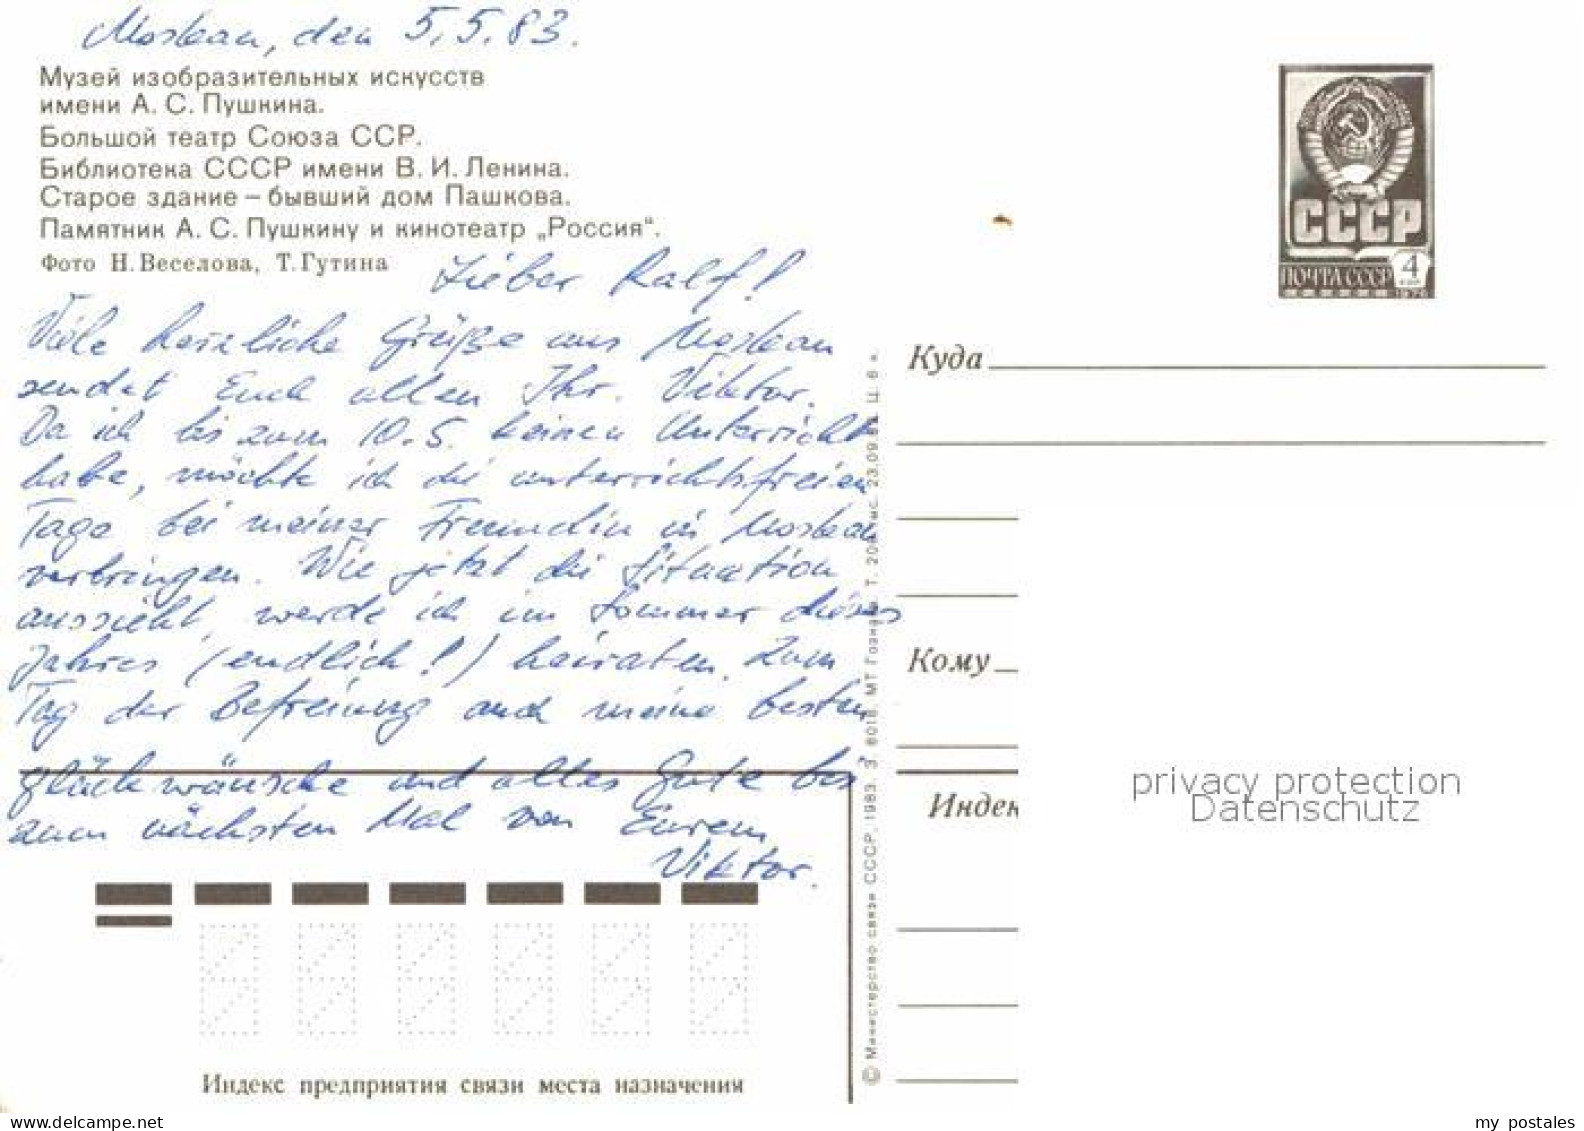 Moskau, den 5.5.83.
Музей изобразительных искусств
имени А. С. Пушкина.
Большой театр Союза ССР.
Библиотека СССР имени В. И. Ленина.
Старое здание – бывший дом Пашкова.
Памятник А. С. Пушкину и кинотеатр „Россия“.
Фото Н. Веселова, Т. Гутина
Lieber Ralf!
Viele herzliche Grüße aus Moskau
sendet Euch allen Ihr Viktor.
Da ich bis zum 10.5. keinen Unterricht
habe, möchte ich die unterrichtsfreien
Tage bei meiner Freundin in Moskau
verbringen. Wie jetzt die Situation
aussieht, werde ich im Sommer dieses
Jahres (endlich!) heiraten. Zum
Tag der Befreiung auch meine besten
Glückwünsche und alles Gute bis
zum nächsten Mal von Eurem
Viktor.
Индекс предприятия связи места назначения
© Министерство связи СССР, 1983. З. 6018. МТ Гознака. Т. 23.09. Ц. 6 к.
СССР
ПОЧТА СССР 4
КОП
1976
Куда
Кому
Индек
privacy protection
Datenschutz
my postales
www.delcampe.net